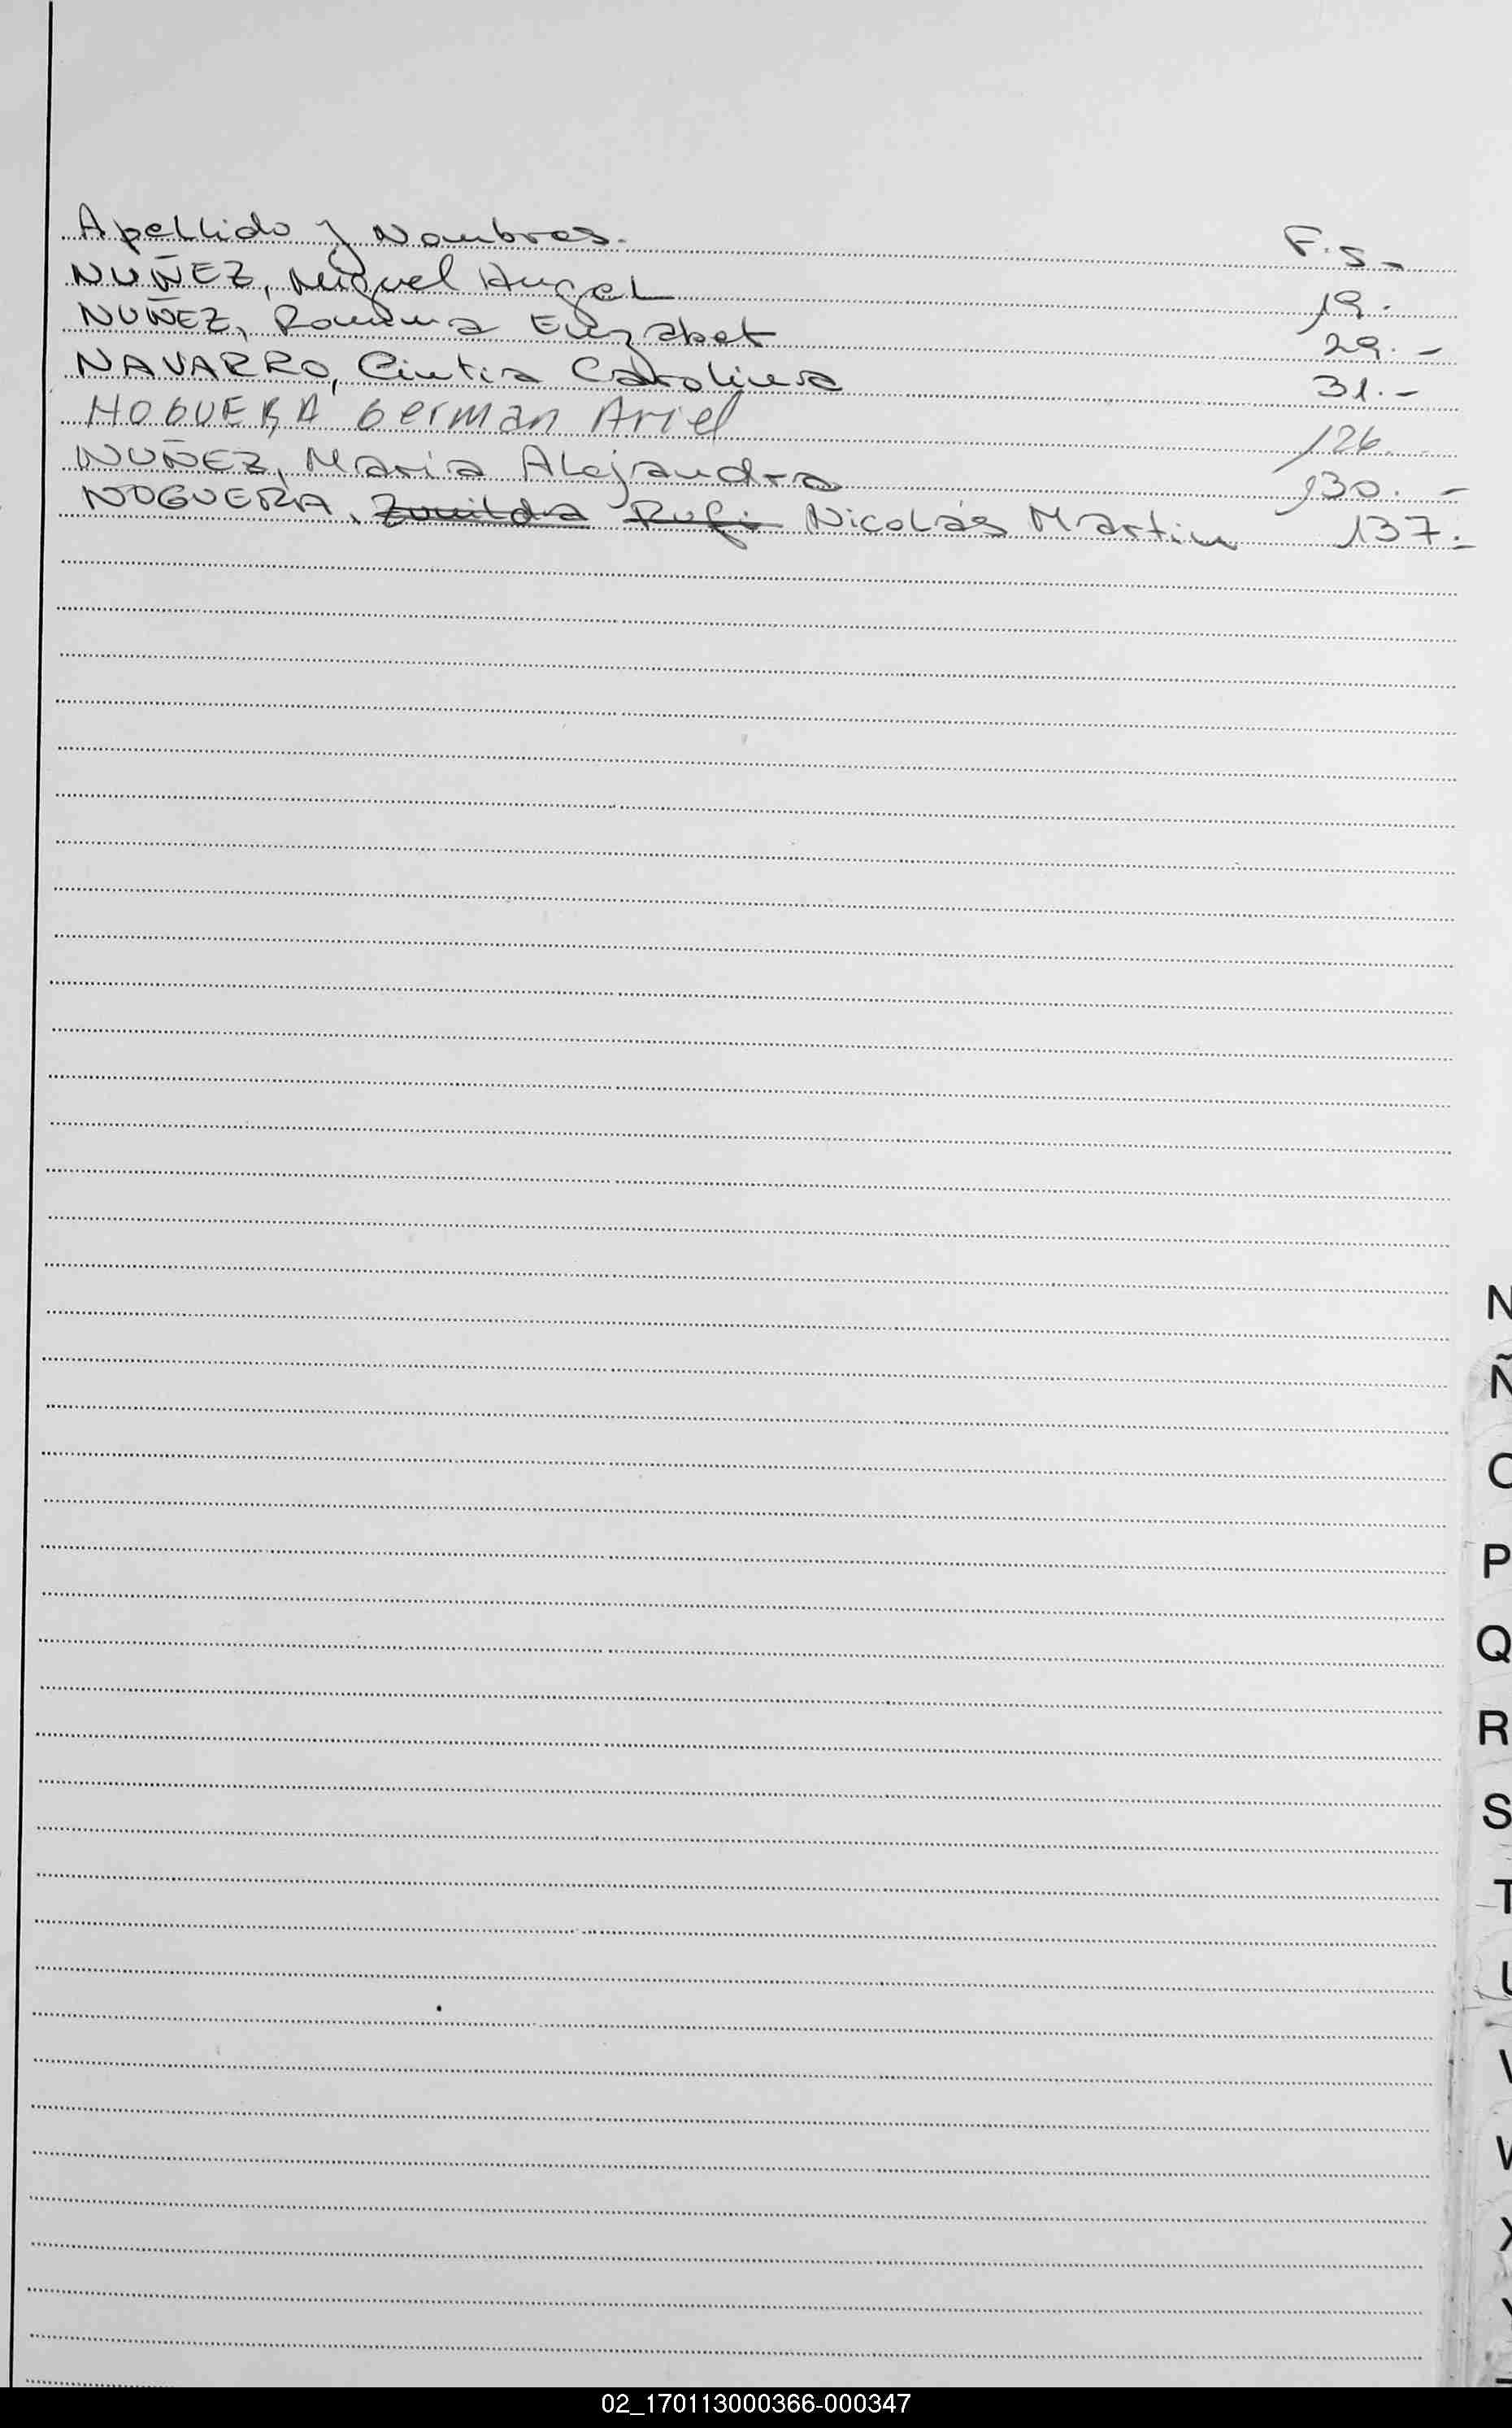 Apellido y Nombres. F.S.-
NUÑEZ, Miguel Angel 19.
NUÑEZ, Romina Elizabet 29.-
NAVARRO, Cintia Carolina 31.-
NOGUERA German Ariel 126.
NUÑEZ, Maria Alejandra 130.-
NOGUERA, Zunilda Rufi Nicolás Martin 137.-
N
Ñ
O
P
Q
R
S
T
U
V
W
X
Y
02_170113000366-000347